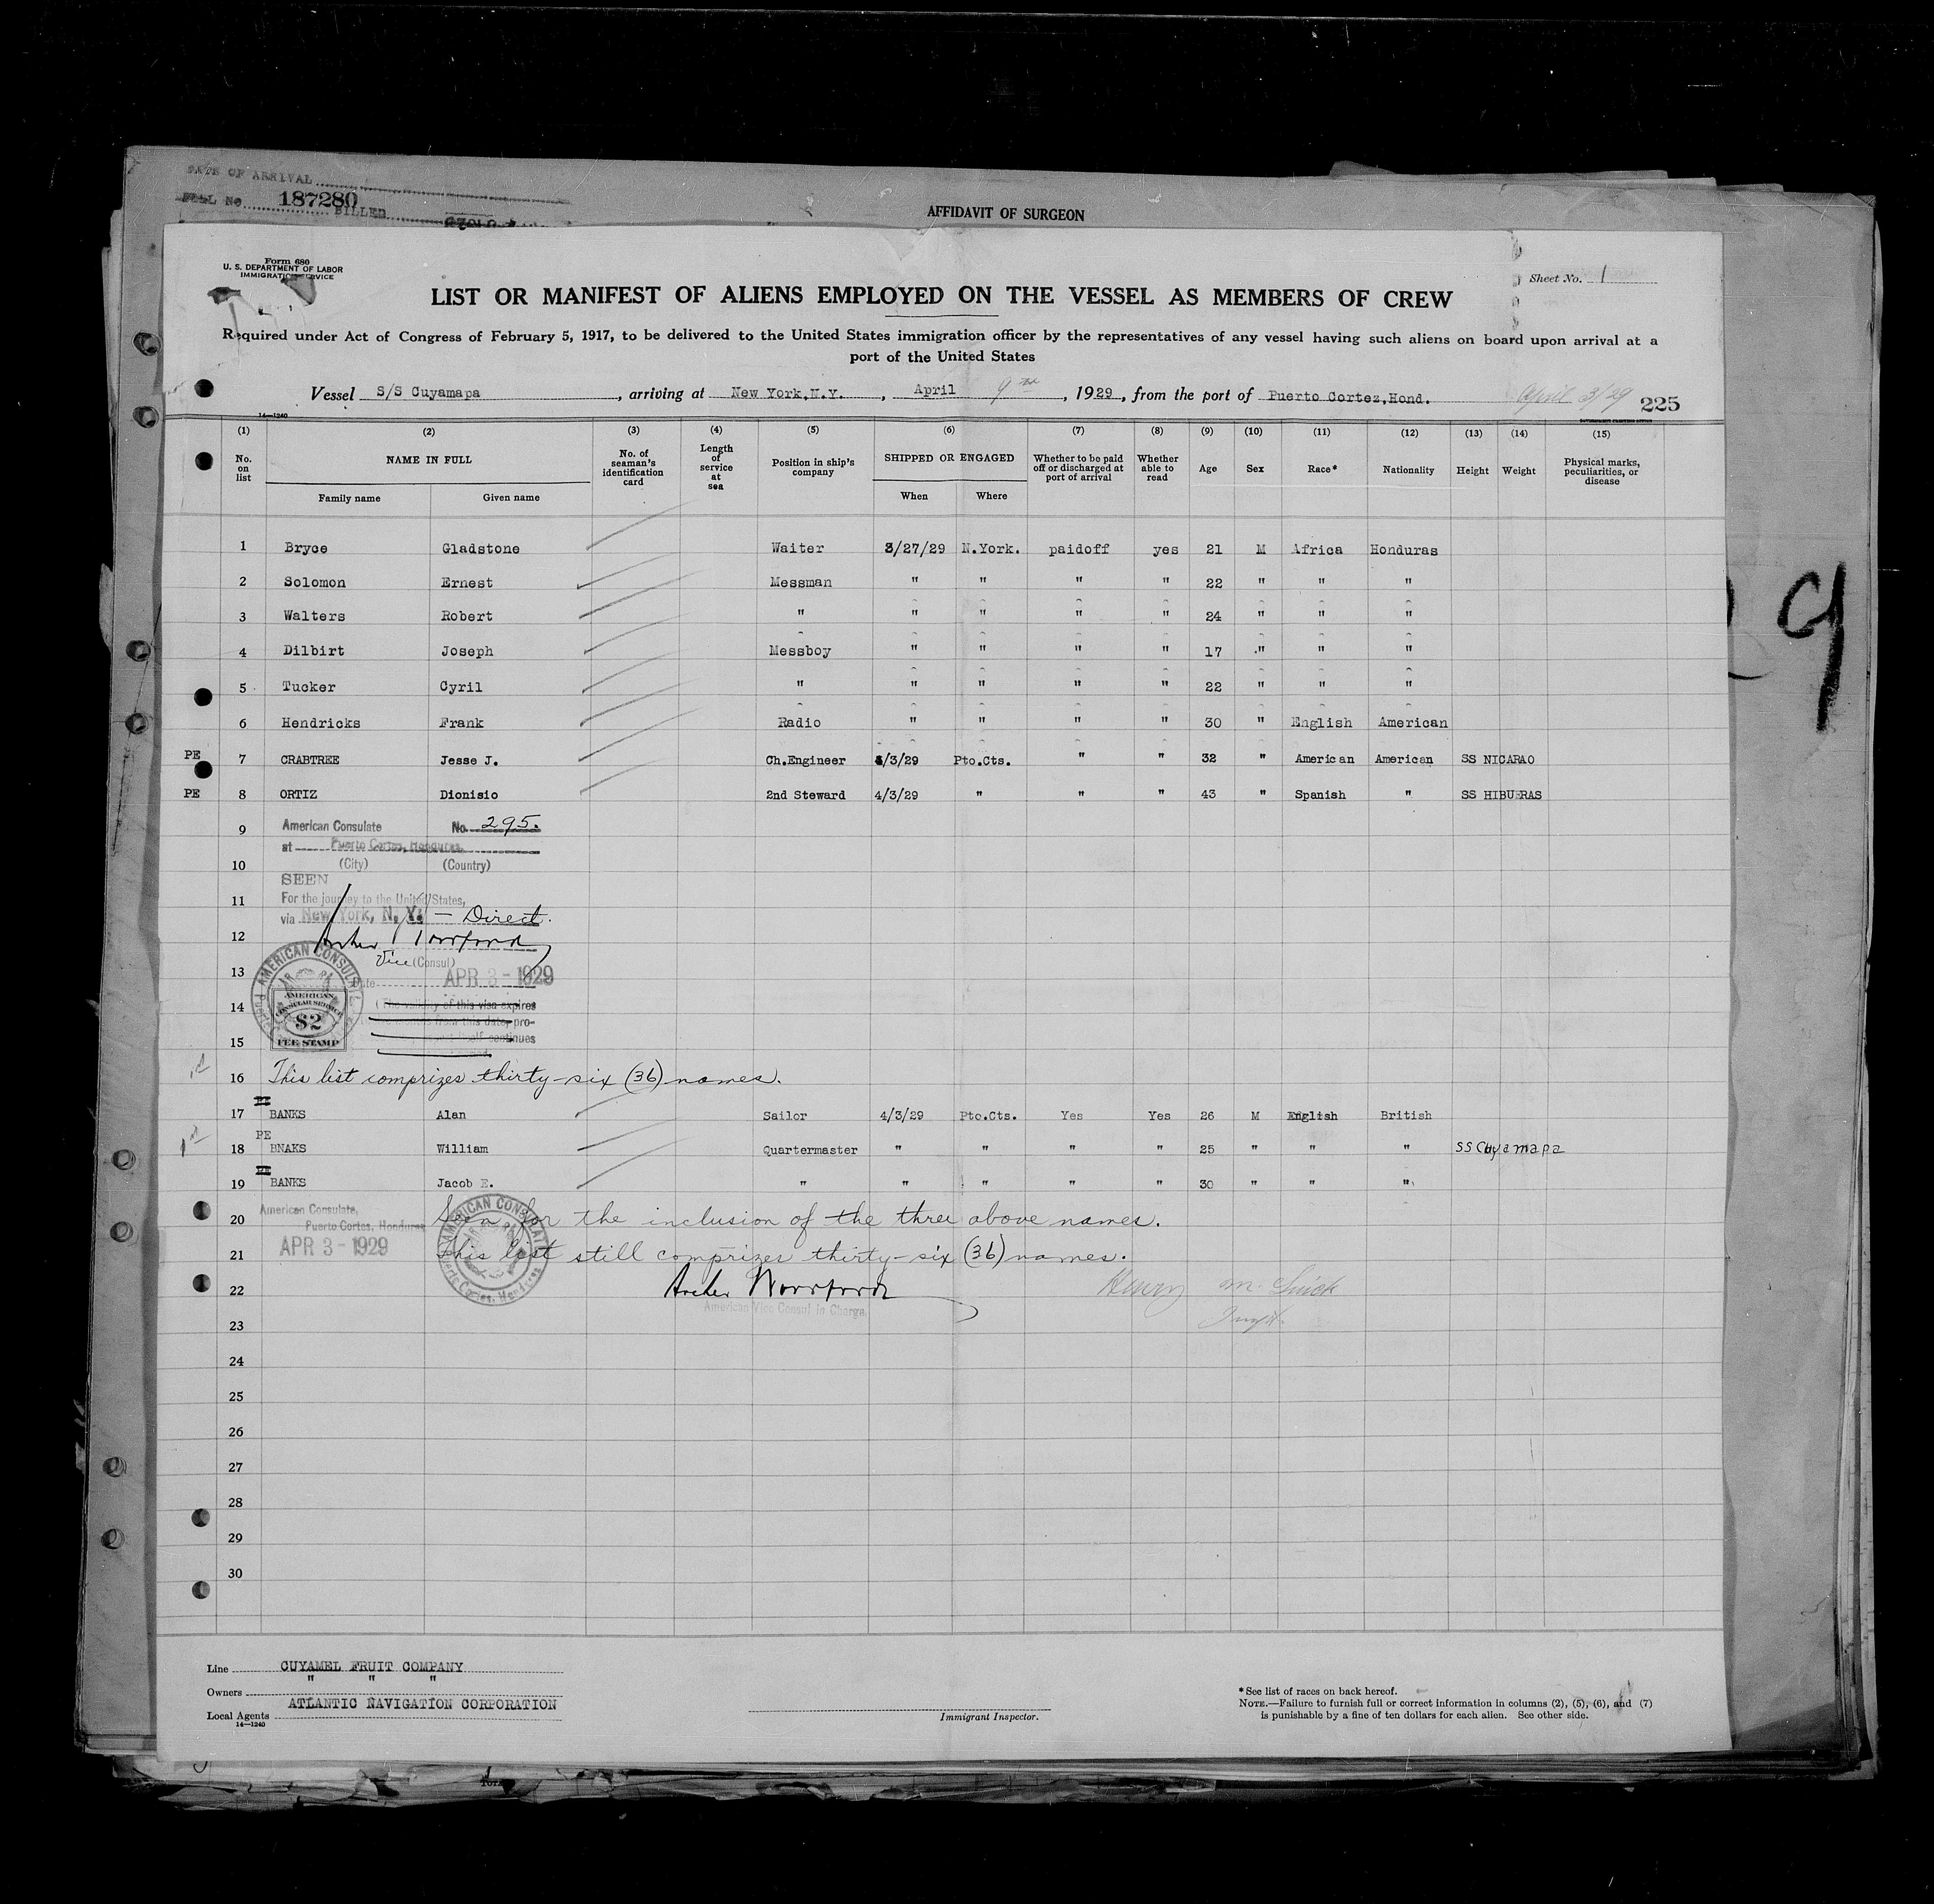 DATE OF ARRIVAL
No. 187280 BILLED
AFFIDAVIT OF SURGEON
Form 680
U. S. DEPARTMENT OF LABOR
IMMIGRATION SERVICE
Sheet No. 1
LIST OR MANIFEST OF ALIENS EMPLOYED ON THE VESSEL AS MEMBERS OF CREW
Required under Act of Congress of February 5, 1917, to be delivered to the United States immigration officer by the representatives of any vessel having such aliens on board upon arrival at a
port of the United States
Vessel S/S Cuyamapa, arriving at New York,N.Y., April 9th, 1929, from the port of Puerto Cortez,Hond. April 3/29
14—1240
225
(1) (2) (3) (4) (5) (6) (7) (8) (9) (10) (11) (12) (13) (14) (15)
No. on list NAME IN FULL Family name Given name No. of seaman's identification card Length of service at sea Position in ship's company SHIPPED OR ENGAGED When Where Whether to be paid off or discharged at port of arrival Whether able to read Age Sex Race* Nationality Height Weight Physical marks, peculiarities, or disease
1 Bryce Gladstone Waiter 3/27/29 N.York. paidoff yes 21 M Africa Honduras
2 Solomon Ernest Messman " " " " 22 " " "
3 Walters Robert " " " " " 24 " " "
4 Dilbirt Joseph Messboy " " " " 17 " " "
5 Tucker Cyril " " " " " 22 " " "
6 Hendricks Frank Radio " " " " 30 " English American
PE 7 CRABTREE Jesse J. Ch.Engineer 4/3/29 Pto.Cts. " " 32 " American American SS NICARAO
PE 8 ORTIZ Dionisio 2nd Steward 4/3/29 " " " 43 " Spanish " SS HIBUERAS
9 American Consulate No. 295.
at Puerto Cortes, Honduras
10 (City) (Country)
SEEN
11 For the journey to the United States,
via New York, N. Y. — Direct.
12
Vice (Consul)
13 Date APR 3 - 1929
AMERICAN CONSULAR SERVICE
$2
FEE STAMP
14 (The validity of this visa expires
from this date, pro-
15 itself continues
16 This list comprizes thirty-six (36) names.
17 BANKS Alan Sailor 4/3/29 Pto.Cts. Yes Yes 26 M English British
PE
18 BNAKS William Quartermaster " " " " 25 " " " SS Cuyamapa
19 BANKS Jacob E. " " " " " 30 " " "
American Consulate,
Puerto Cortes, Honduras
APR 3 - 1929
AMERICAN CONSULATE
20 Seen for the inclusion of the three above names.
21 This list still comprizes thirty-six (36) names.
22
American Vice Consul in Charge.
23
24
25
26
27
28
29
30
Line CUYAMEL FRUIT COMPANY
Owners " " "
Local Agents ATLANTIC NAVIGATION CORPORATION
14—1240
Immigrant Inspector.
*See list of races on back hereof.
NOTE.—Failure to furnish full or correct information in columns (2), (5), (6), and (7)
is punishable by a fine of ten dollars for each alien. See other side.